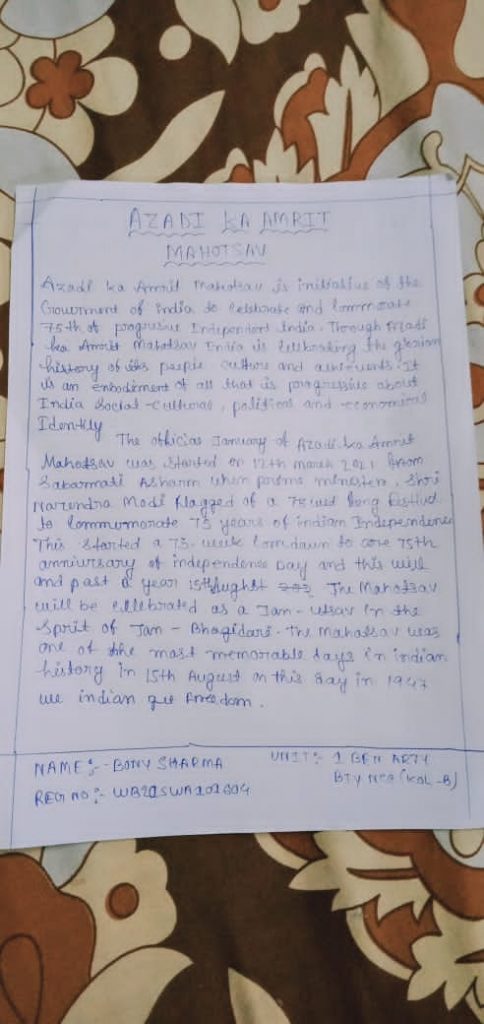 AZADI KA AMRIT
MAHOTSAV
Azadi ka Amrit Mahotsav is initiative of the
Gouvrment of India to celebrate and Commorate
75th of progresive Independent India. Through
ka Amrit Mahotsav India is celebrating the glorious
history of its people culture and It
is an embodiment of all that is progressive about
India Social-cultural, political and economical
Identity
The official January of Azadi ka Amrit
Mahotsav was started on 12th march 2021 from
Sabarmati Asharm when prime minister, Shri
Narendra Modi flagged of a long
to Commumorate 75 years of indian Independence
This started a 75-week to 75th
anniversary of independence Day and this will
and past a year 15th The Mahotsav
will be cellebrated as a Jan-utsav in the
Sprit of Jan-Bhagidari. The Mahatsav was
one of the most memorable days in indian
history in 15th August on this day in 1947
we indian get freedom.
NAME :- BONY SHARMA
UNIT :- 1 BEN ARTY
BTY NCC (KOL-B)
REG NO :-